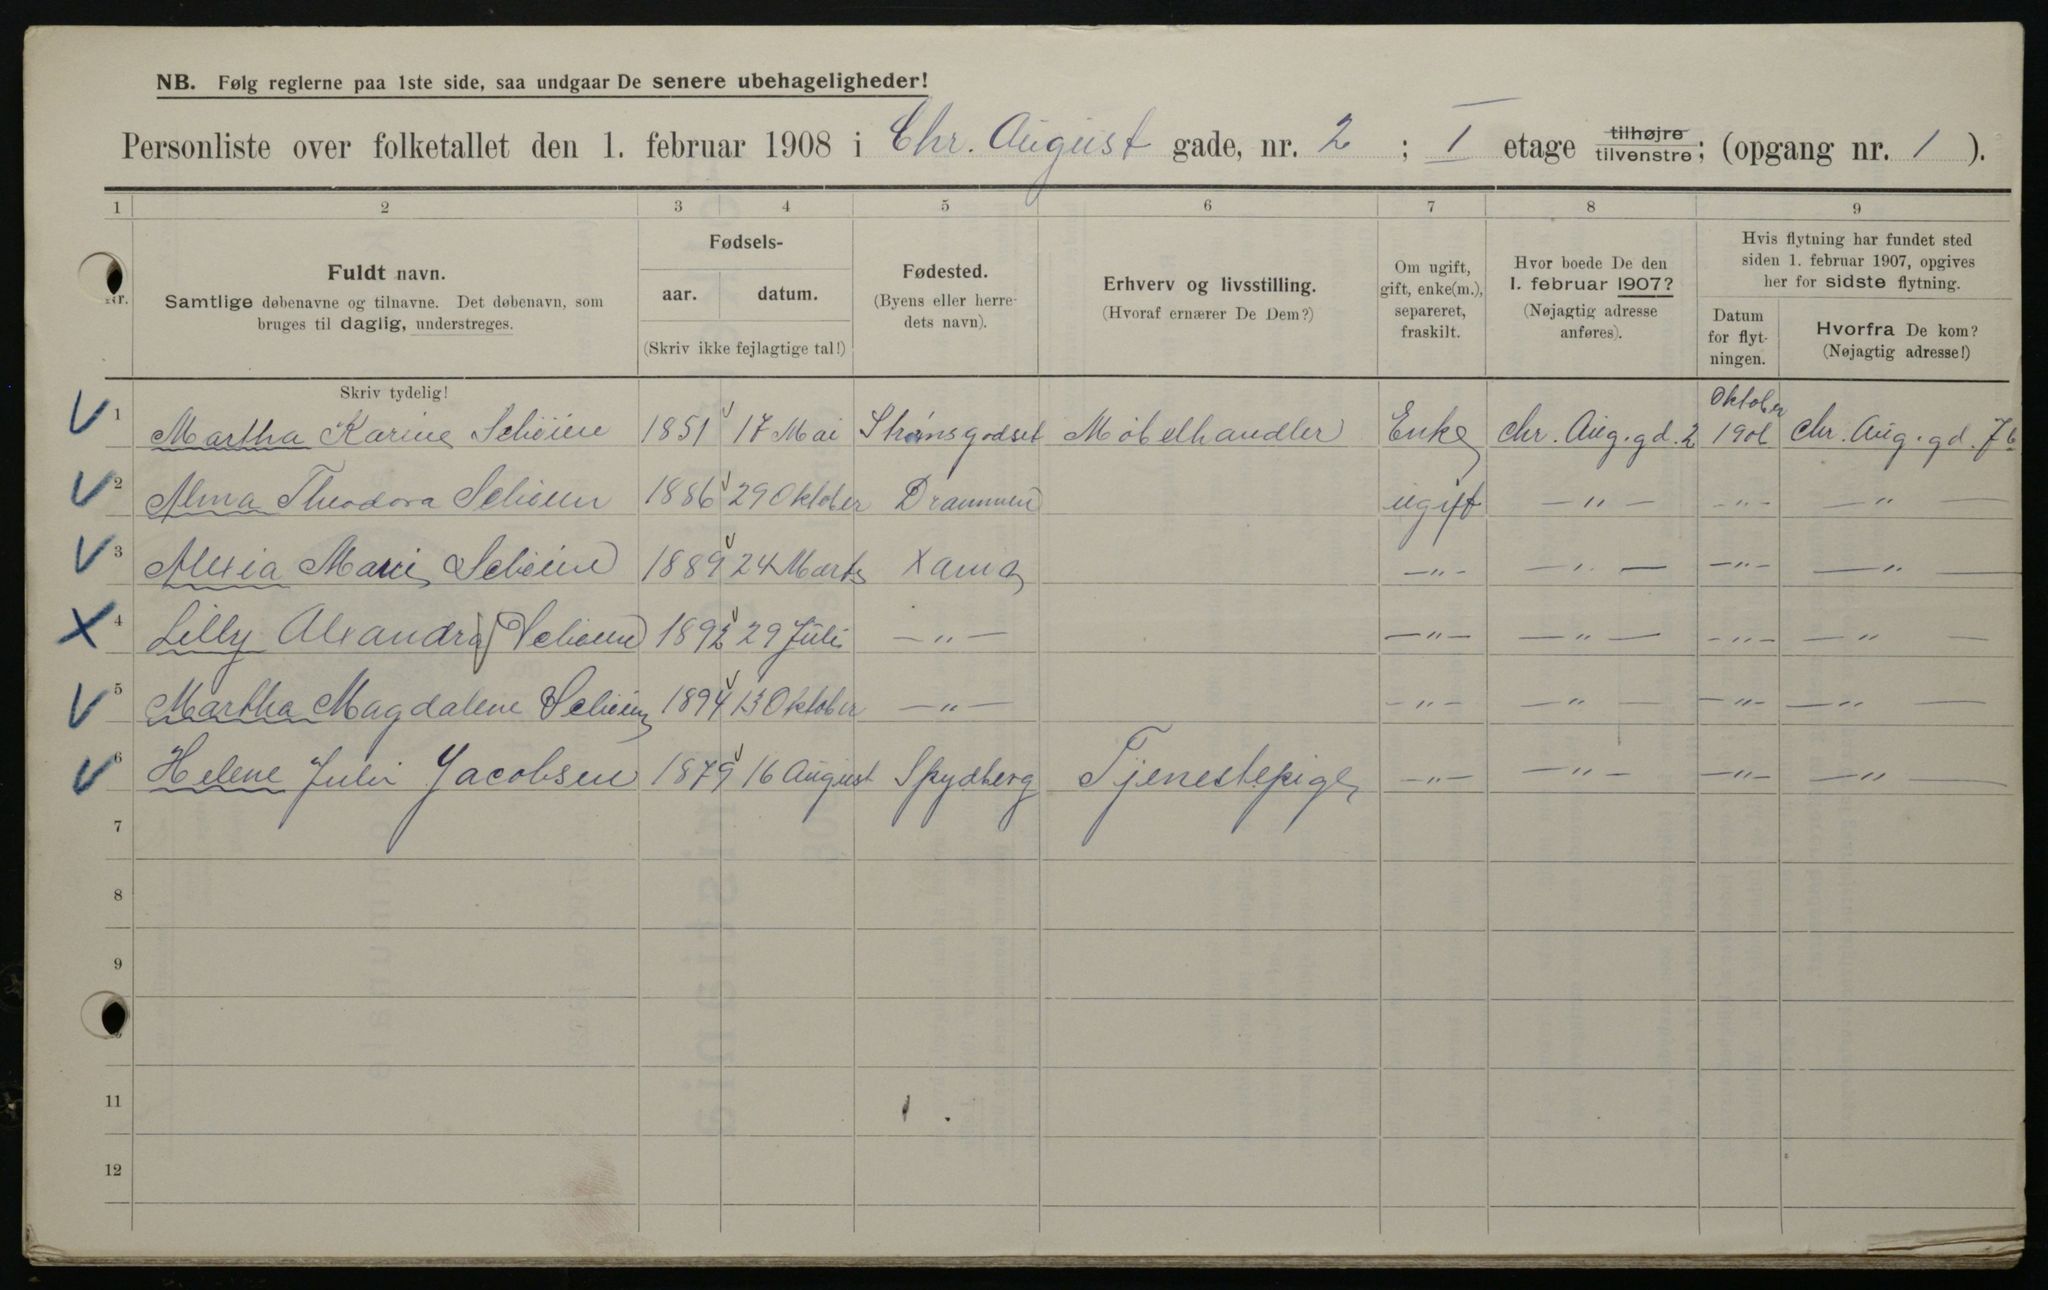 NB. Følg reglerne paa 1ste side, saa undgaar De senere ubehageligheder!
Personliste over folketallet den 1. februar 1908 i Chr. August gade, nr. 2 ; I etage tilhøjre tilvenstre; (opgang nr. 1 ).
1 2 3 4 5 6 7 8 9
Nr. Fuldt navn. Samtlige døbenavne og tilnavne. Det døbenavn, som bruges til daglig, understreges.
Fødsels- aar. datum. (Skriv ikke fejlagtige tal!)
Fødested. (Byens eller herredets navn).
Erhverv og livsstilling. (Hvoraf ernærer De Dem?)
Om ugift, gift, enke(m.), separeret, fraskilt.
Hvor boede De den 1. februar 1907? (Nøjagtig adresse anføres).
Hvis flytning har fundet sted siden 1. februar 1907, opgives her for sidste flytning.
Datum for flytningen. Hvorfra De kom? (Nøjagtig adresse!)
Skriv tydelig!
1 Martha Karine Schøien 1851 17 Mai Strømsgodset Møbelhandler Enke Chr. Aug. gd. 2 Oktober 1906 Chr. Aug. gd. 7b
2 Alma Theodora Schøien 1886 29 Oktober Drammen ugift —"— —"— —"—
3 Alexia Marie Schøien 1889 24 Marts Xania —"— —"— —"— —"—
4 Lilly Alexandra Schøien 1892 29 Juli —"— —"— —"— —"— —"—
5 Martha Magdalene Schøien 1894 13 Oktober —"— —"— —"— —"— —"—
6 Helene Julie Jacobsen 1879 16 August Spydberg Tjenestepige —"— —"— —"— —"—
7
8
9
11
12